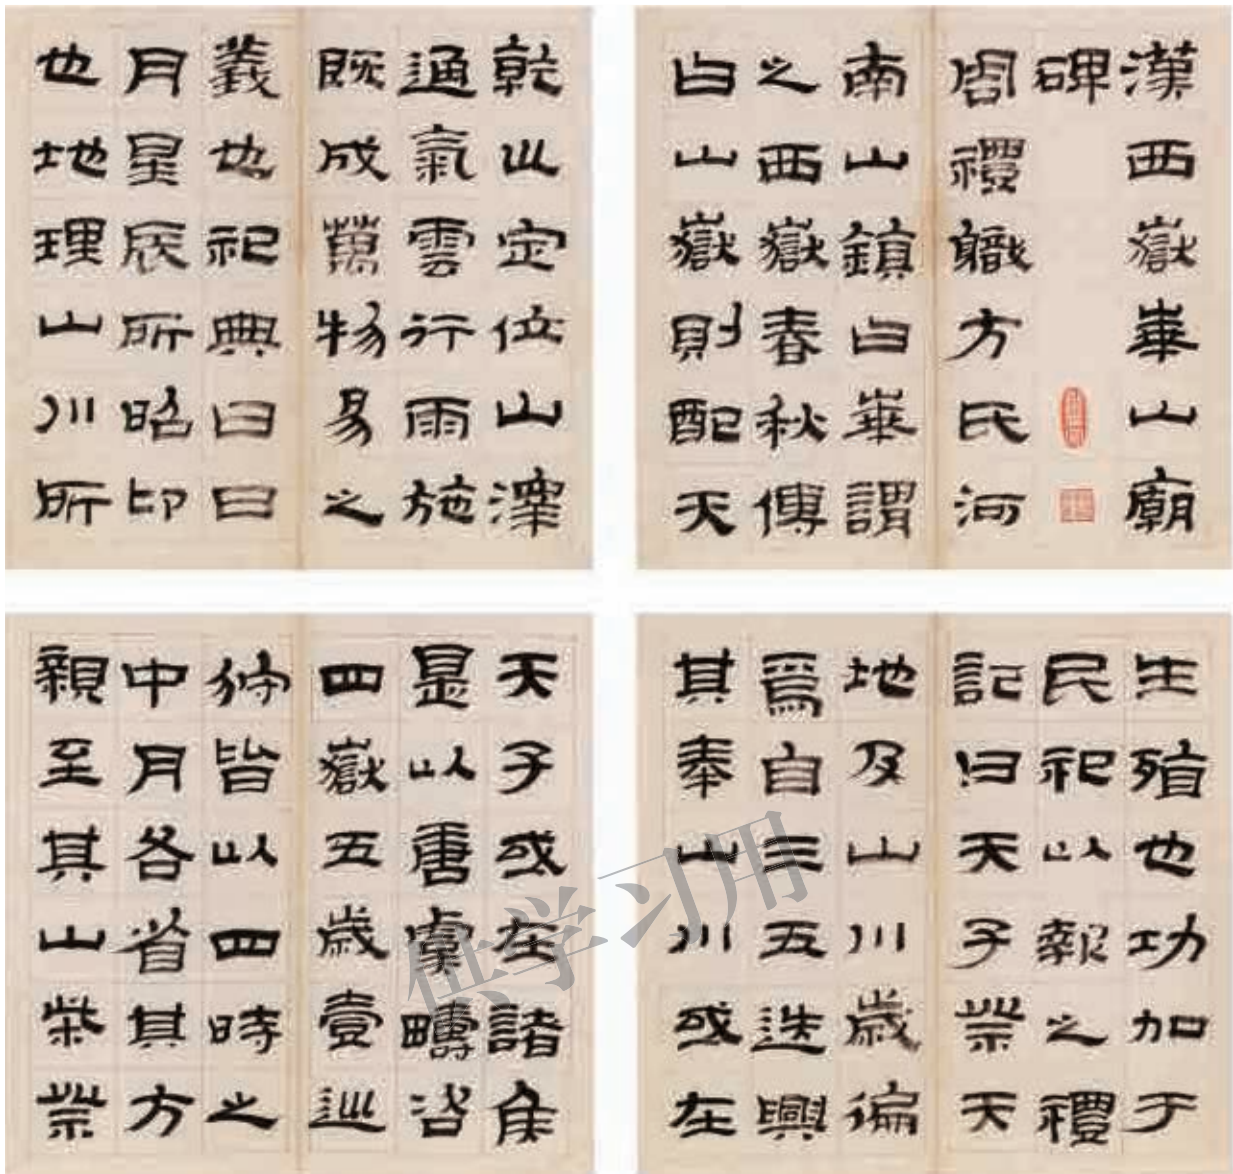 漢西嶽崋山廟
碑
周禮職方氏河
南山鎮曰崋謂
之西嶽春秋傳
曰山嶽則配天
乾巛定位山澤
通氣雲行雨施
既成萬物易之
義也祀典曰日
月星辰所昭卬
也地理山川所
生殖也功加于
民祀以報之禮
記曰天子祭天
地及山川歲徧
焉自三五迭興
其奉山川或在
天子或在諸侯
是以唐虞疇咨
四嶽五歲壹巡
狩皆以四時之
中月各省其方
親至其山柴祭
供学习用